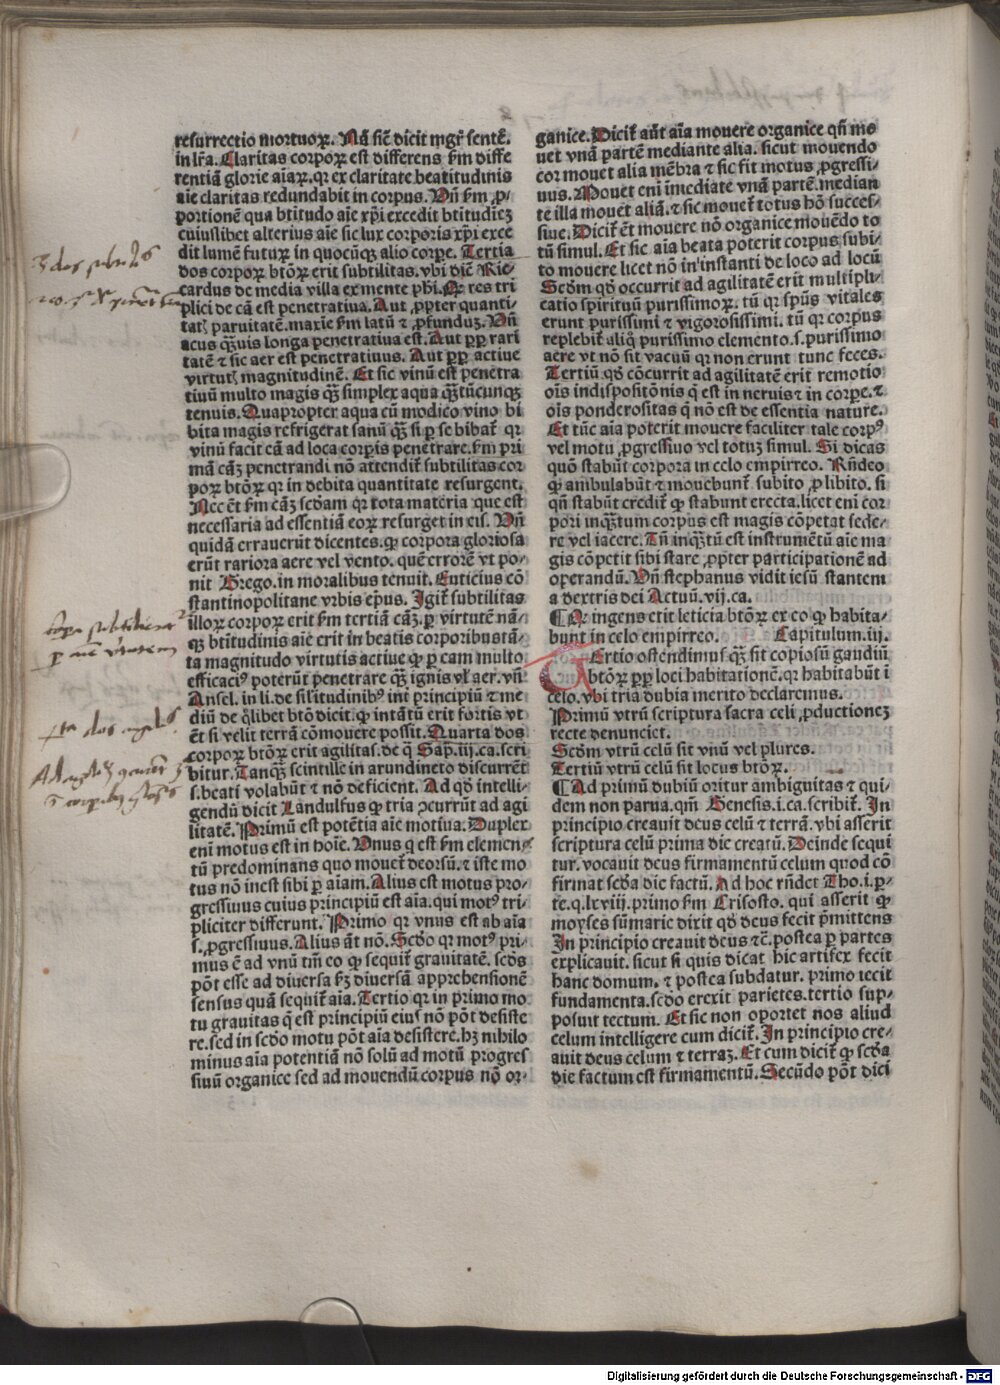 resurrectio mortuoꝝ. Nā sic̄ dicit mgr̄ sentē.
in lr̄a. Claritas corpoꝝ est differens ẜm diffe
rentiā glorie aīaꝝ. qr ex claritate beatitudinis
aīe claritas redundabit in corpus. Vn̄ ẜm ꝓ⸗
portionē qua btitudo aīe xp̄i excedit btitudīeꝫ
cuiuslibet alterius aīe sic lux corporis xp̄i exce
dit lumē futuꝝ in quocūqꝫ alio corpe. Tertia
dos corpoꝝ btōꝝ erit subtilitas. vbi dic̄ Ric⸗
cardus de media villa ex mente ph̄i. Qr res tri
plici de cā est penetratiua. Aut ꝓpter quanti⸗
tatꝭ paruitatē. maxīe ẜm latū ⁊ ꝓfunduꝫ. Vn̄
acus qꝫuis longa penetratiua est. Aut ꝓp rari
tatē ⁊ sic aer est penetratiuus. Aut ꝓp actiue
virtutꝭ magnitudinē. Et sic vinū est penetra
tiuū multo magis qꝫ simplex aqua qꝫtūcunqꝫ
tenuis. Quapropter aqua cū modico vino bi
bita magis refrigerat sanū qꝫ si ꝑ se bibat̄ qr
vinū facit eā ad loca corpis penetrare. ẜm pri
mā cāꝫ penetrandi nō attendit̄ subtilitas cor
poꝝ btōꝝ qr in debita quantitate resurgent.
Nec ēt ẜm cāꝫ scd̄am qr tota materia que est
necessaria ad essentiā eoꝝ resurget in eis. Vn̄
quidā errauerūt dicentes. ꝙ corpora gloriosa
erūt rariora aere vel vento. quē errorē vt po⸗
nit Grego. in moralibus tenuit. Euticius cō
stantinopolitane vrbis ep̄us. Igit̄ subtilitas
illoꝝ corpoꝝ erit ẜm tertiā cāꝫ. ꝑ virtutē nā⸗
qꝫ btītudinis aīe erit in beatis corporibus tā⸗
ta magnitudo virtutis actiue ꝙ ꝑ eam multo
efficaciꝰ poterūt penetrare qꝫ ignis vl̓ aer. vn̄
Ansel. in li. de sil̓itudinibꝰ int̄ principiū ⁊ me
diū de ql̓ibet btō dicit. ꝙ intātū erit fortis vt
ēt si velit terrā cōmouere possit. Quarta dos
corpoꝝ btōꝝ erit agilitas. de q̄ Sap̄. iij. ca. scri
bitur. Tanqꝫ scintille in arundineto discurrēt
.s. beati volabūt ⁊ nō deficient. Ad qd̄ intelli⸗
gendū dicit Landulfus ꝙ tria ↄcurrūt ad agi
litatē. Primū est potētia aīe motiua. Duplex
enī motus est in hoīe. Vnus q̄ est ẜm elemen⸗
tū predominans quo mouet̄ deorsū. ⁊ iste mo
tus nō inest sibi ꝑ aīam. Alius est motus pro⸗
gressiuus cuius principiū est aīa. qui motꝰ tri⸗
pliciter differunt. Primo qr vnus est ab aīa
.s. ꝓgressiuus. Alius āt nō. Scd̄o qr motꝰ pri⸗
mus ē ad vnū tm̄ eo ꝙ sequit̄ grauitatē. scd̄s
pōt esse ad diuersa ẜꝫ diuersā apprehensionē
sensus quā sequit̄ aīa. Tertio qr in primo mo
tu grauitas q̄ est principiū eiuſ nō pōt desiste
re. sed in scd̄o motu pōt aīa desistere. hꝫ nihilo
minus aīa potentiā nō solū ad motū progres
siuū organice sed ad mouendū corpus nō or⸗
ganice. Dicit̄ aūt aīa mouere organice qn̄ mo
uet vnā partē mediante alia. sicut mouendo
cor mouet alia mēbra ⁊ sic fit motus ꝓgressi⸗
uus. Mouet enī imediate vnā partē. median
te illa mouet aliā. ⁊ sic mouet̄ totus hō succes⸗
siue. Dicit̄ ēt mouere nō organice mouēdo to
tū simul. Et sic aīa beata poterit corpus subi⸗
to mouere licet nō in instanti de loco ad locū
Scd̄m qd̄ occurrit ad agilitatē erit multipli⸗
catio spirituū purissimoꝝ. tū qr spūs vitales
erunt purissimi ⁊ vigorosissimi. tū qr corpus
replebit̄ aliq̄ purissimo elemento. s. purissimo
aere vt nō sit vacuū qr non erunt tunc feces.
Tertiū qd̄ cōcurrit ad agilitatē erit remotio
oīs indispositōnis q̄ est in neruis ⁊ in corpe. ⁊
oīs ponderositas q̄ nō est de essentia nature.
Et tūc aīa poterit mouere faciliter tale corpꝰ
vel motu ꝓgressiuo vel totuꝫ simul. Si dicas
quō stabūt corpora in celo empirreo. Rn̄deo
ꝙ ambulabūt ⁊ mouebunt̄ subito ꝓ libito. si
qn̄ stabūt credit̄ ꝙ stabunt erecta. licet enī cor
pori inqꝫtum corpus est magis cōpetat sede⸗
re vel iacere. Tn̄ inqꝫtū est instrumētū aīe ma
gis cōpetit sibi stare ꝓpter participationē ad
operandū. Vn̄ stephanus vidit iesū stantem
a dextris dei Actuū. vij. ca.
¶ Qꝙ ingens erit leticia btōꝝ ex eo ꝙ habita⸗
bunt in celo empirreo. Capitulum. iij.
Tertio ostendimuſ qꝫ sit copiosū gaudiū
btōꝝ ꝓp loci habitationē. qr habitabūt ī
celo. vbi tria dubia merito declaremus.
Primū vtrū scriptura sacra celi ꝓductioneꝫ
recte denunciet.
Scd̄m vtrū celū sit vnū vel plures.
Tertiū vtrū celū sit locus btōꝝ.
¶ Ad primū dubiū oritur ambiguitas ⁊ qui⸗
dem non parua. qm̄ Genesis. i. ca. scribit̄. In
principio creauit deus celū ⁊ terrā. vbi asserit
scriptura celū prima die creatū. Deinde sequi
tur. vocauit deus firmamentū celum quod cō
firmat scd̄a die factū. Ad hoc rn̄det Tho. i. p⸗
te. q. lxviii. primo ẜm Crisosto. qui asserit ꝙ
moysen sūmarie dixit qd̄ deus fecit p̄mittens
In principio creauit deus ⁊c̄. postea ꝑ partes
explicauit. sicut si quis dicat hic artifex fecit
hanc domum. ⁊ postea subdatur. primo iecit
fundamenta. scd̄o erexit parietes. tertio sup⸗
posuit tectum. Et sic non oportet nos aliud
celum intelligere cum dicit̄. In principio cre⸗
auit deus celum ⁊ terraꝫ. Et cum dicit̄ ꝙ scd̄a
die factum est firmamentū. Secūdo pōt dici
Digitalisierung gefördert durch die Deutsche Forschungsgemeinschaft - DFG